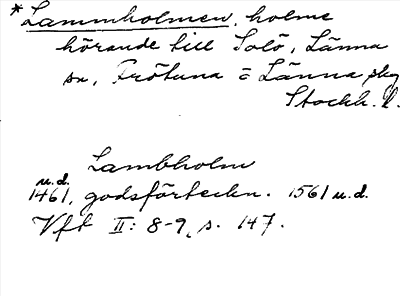 *Lammholmen, holme
hörande till Solö, Länna
sn, Frötuna o Länna skg
Stockh. l.
Lambholm
u.d.
1461, godsförteckn. 1561 u.d.
Vft II: 8-9, s. 147.